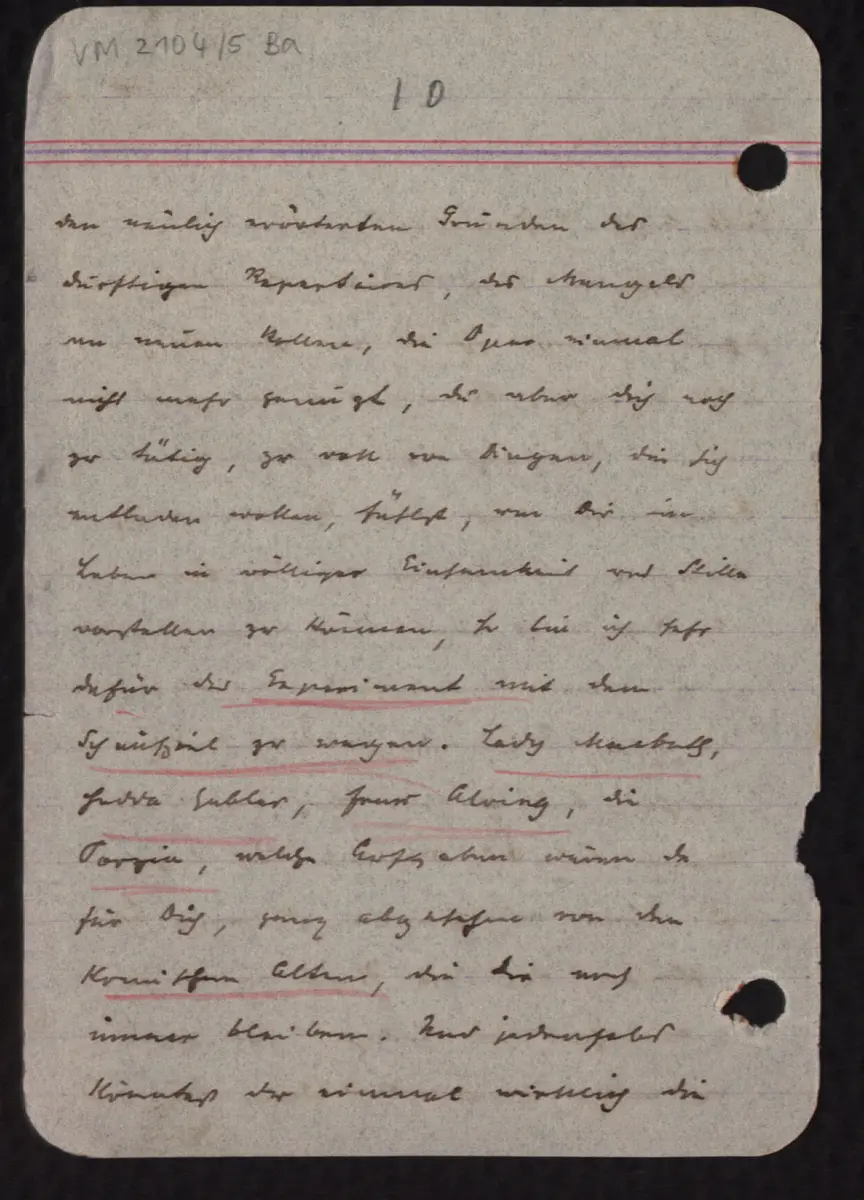 VM 2104/5 Ba
10
den neulich erörterten Gründen des
dürftigen Repertoires, des Mangels
an neuen Rollen, die Oper einmal
nicht mehr genügt, du aber dich noch
zu tätig, zu voll von Dingen, die sich
entladen wollen, fühlst, um Dir ein
Leben in völliger Einsamkeit und Stille
vorstellen zu können, so bin ich sehr
dafür das Experiment mit dem
Schauspiel zu wagen. Lady Macbeth,
Hedda Gabler, Frau Alving, die
Porzia, welche Aufgaben wären da
für Dich, ganz abgesehen von den
Komischen Alten, die dir noch
immer bleiben. Und jedenfalls
könntest du einmal wirklich die